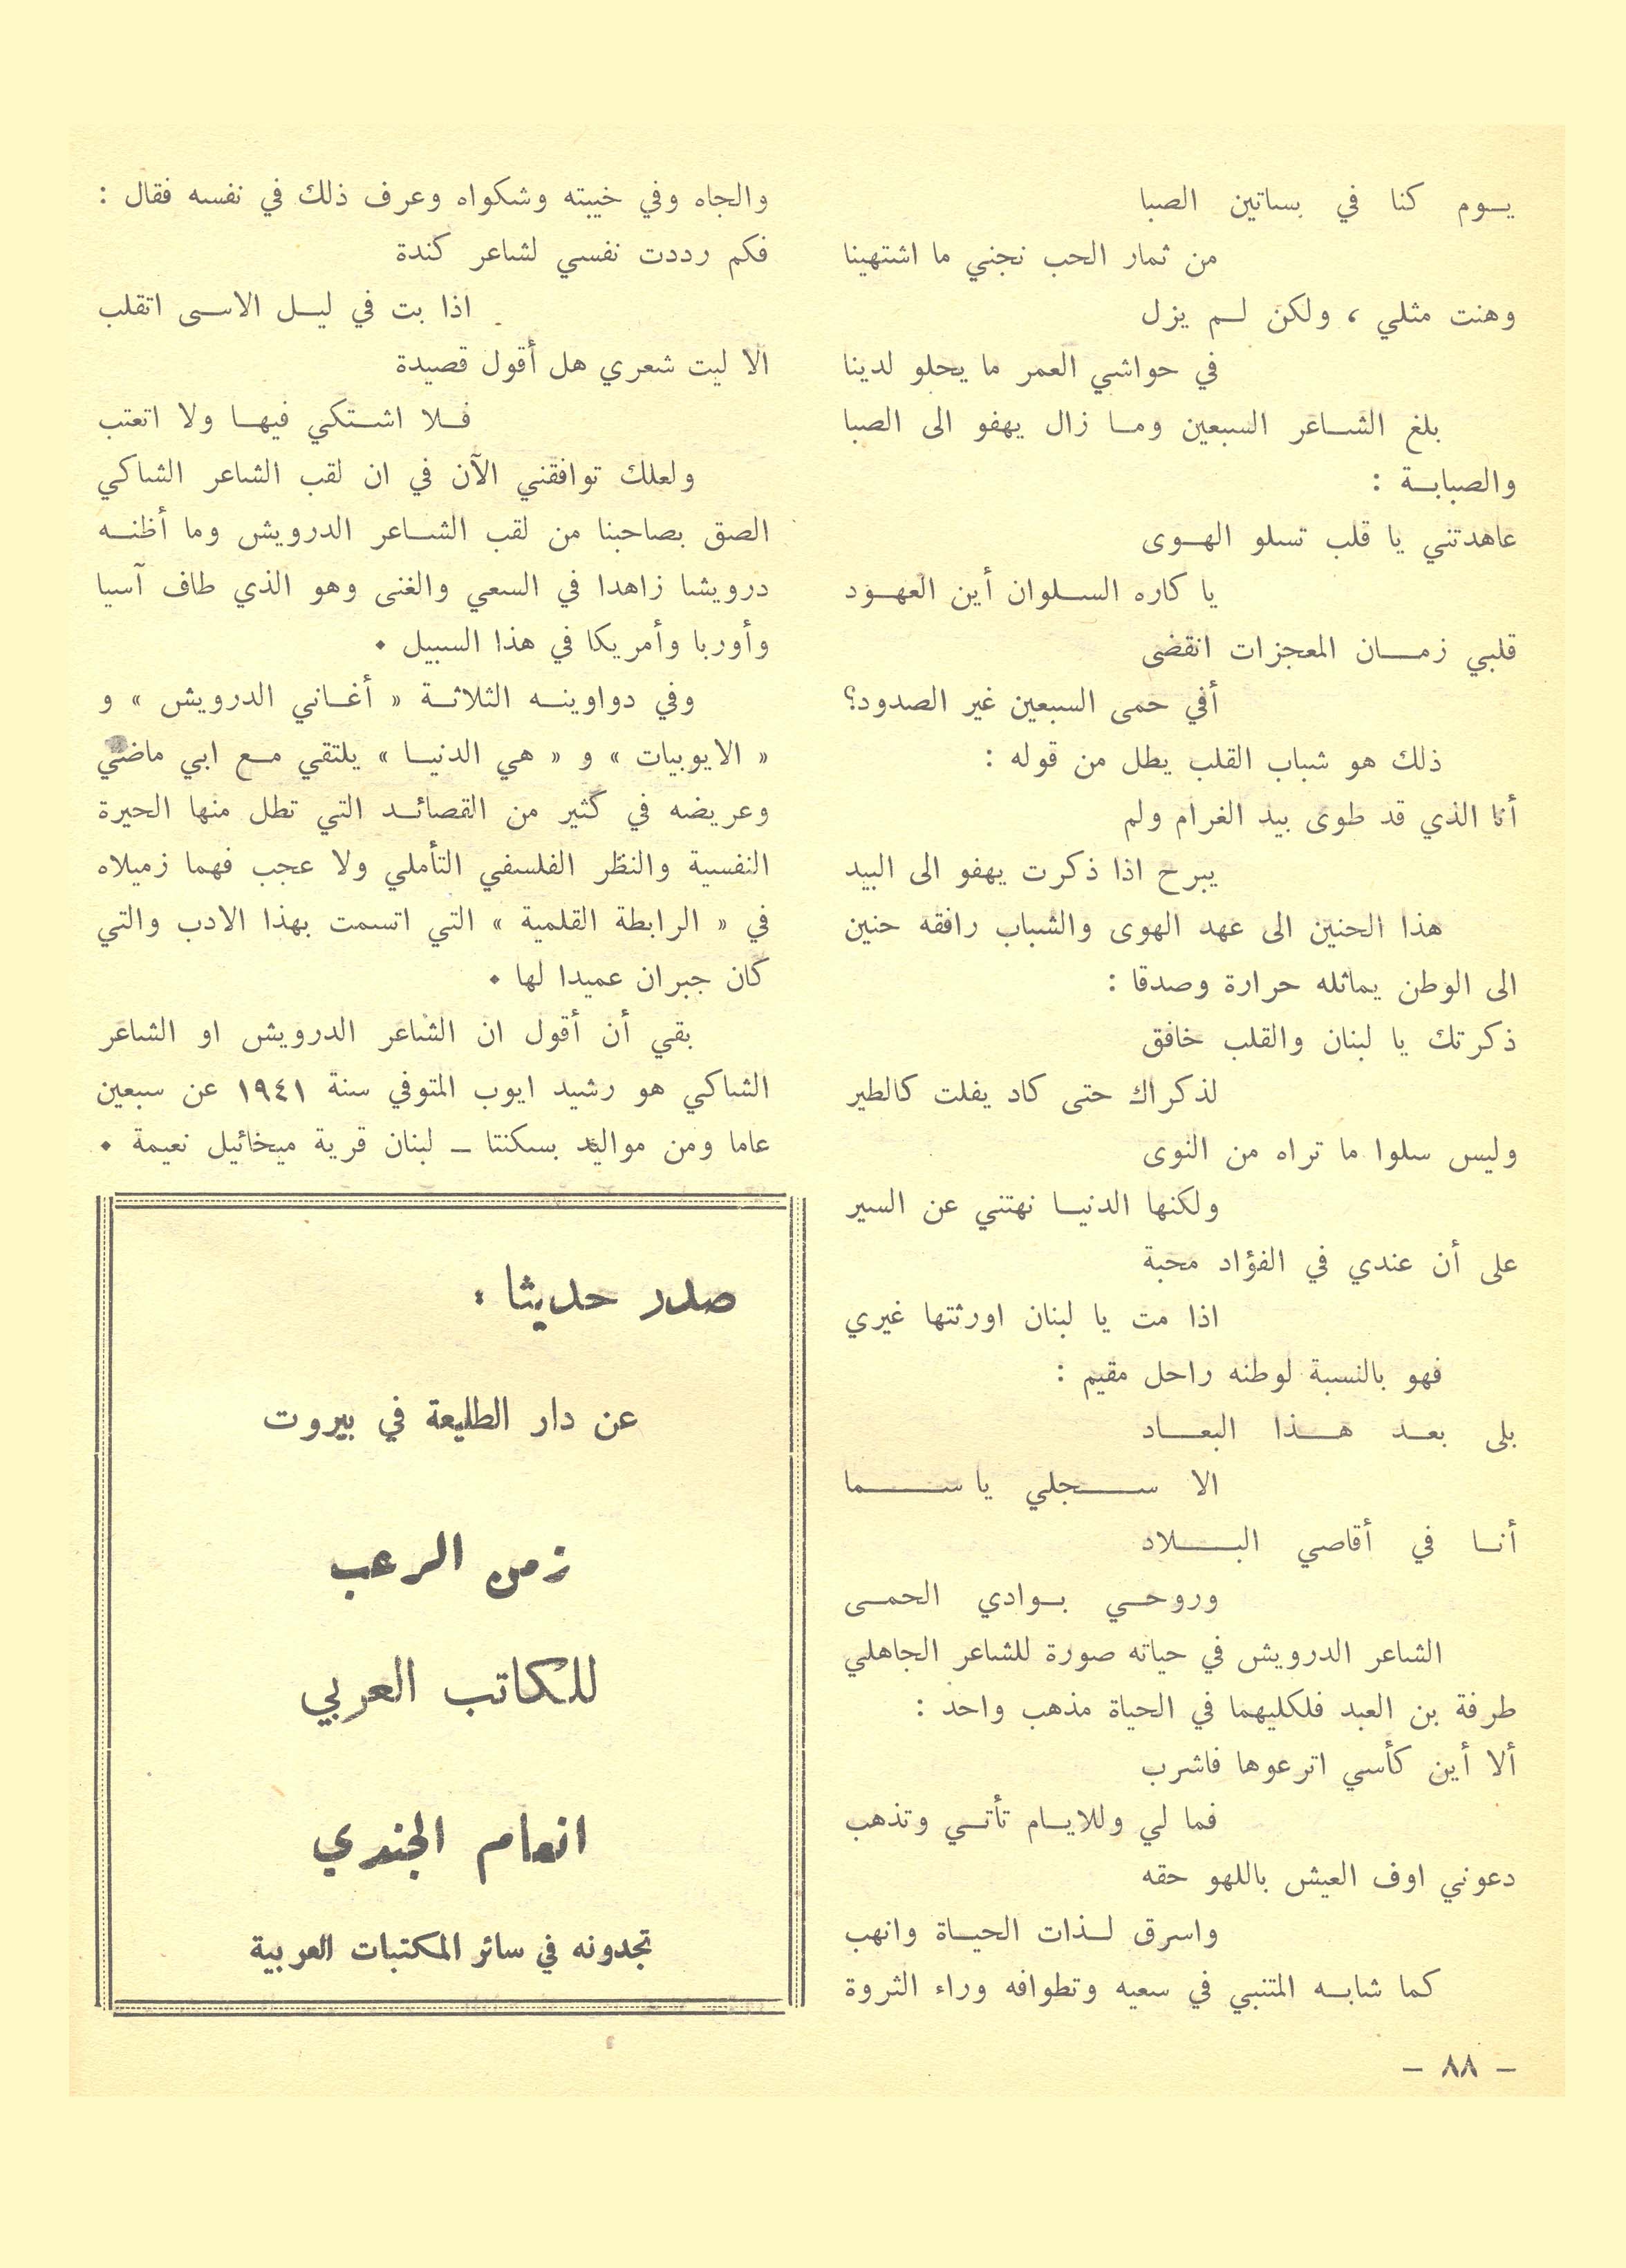 يوم كنا في بساتين الصبا
من ثمار الحب نجني ما اشتهينا
وهنت مثلي ، ولكن لم يزل
في حواشي العمر ما يحلو لدينا
بلغ الشاعر السبعين وما زال يهفو الى الصبا
والصبابة :
عاهدتني يا قلب تسلو الهوى
يا كاره السلوان أين العهود
قلبي زمان المعجزات انقضى
أفي حمى السبعين غير الصدود؟
ذلك هو شباب القلب يطل من قوله :
أنا الذي قد طوى بيد الغرام ولم
يبرح اذا ذكرت يهفو الى البيد
هذا الحنين الى عهد الهوى والشباب رافقه حنين
الى الوطن يماثله حرارة وصدقا :
ذكرتك يا لبنان والقلب خافق
لذكراك حتى كاد يفلت كالطير
وليس سلوا ما تراه من النوى
ولكنها الدنيا نهتني عن السير
على أن عندي في الفؤاد محبة
اذا مت يا لبنان اورثتها غيري
فهو بالنسبة لوطنه راحل مقيم :
بلى بعد هذا البعاد
الا سجلي يا سما
أنا في أقاصي البلاد
وروحي بوادي الحمى
الشاعر الدرويش في حياته صورة للشاعر الجاهلي
طرفة بن العبد فلكليهما في الحياة مذهب واحد :
ألا أين كأسي اترعوها فاشرب
فما لي وللايام تأتي وتذهب
دعوني اوف العيش باللهو حقه
واسرق لذات الحياة وانهب
كما شابه المتنبي في سعيه وتطوافه وراء الثروة
والجاه وفي خيبته وشكواه وعرف ذلك في نفسه فقال :
فكم رددت نفسي لشاعر كندة
اذا بت في ليل الاسى اتقلب
الا ليت شعري هل أقول قصيدة
فلا اشتكي فيها ولا اتعتب
ولعلك توافقني الآن في ان لقب الشاعر الشاكي
الصق بصاحبنا من لقب الشاعر الدرويش وما أظنه
درويشا زاهدا في السعي والغنى وهو الذي طاف آسيا
وأوربا وأمريكا في هذا السبيل .
وفي دواوينه الثلاثة « أغاني الدرويش » و
« الايوبيات » و « هي الدنيا » يلتقي مع ابي ماضي
وعريضه في كثير من القصائد التي تطل منها الحيرة
النفسية والنظر الفلسفي التأملي ولا عجب فهما زميلاه
في « الرابطة القلمية » التي اتسمت بهذا الادب والتي
كان جبران عميدا لها .
بقي أن أقول ان الشاعر الدرويش او الشاعر
الشاكي هو رشيد ايوب المتوفي سنة ١٩٤١ عن سبعين
عاما ومن مواليد بسكنتا – لبنان قرية ميخائيل نعيمة .
صدر حديثا :
عن دار الطليعة في بيروت
زمن الرعب
للكاتب العربي
انعام الجندي
تجدونه في سائر المكتبات العربية
– ٨٨ –